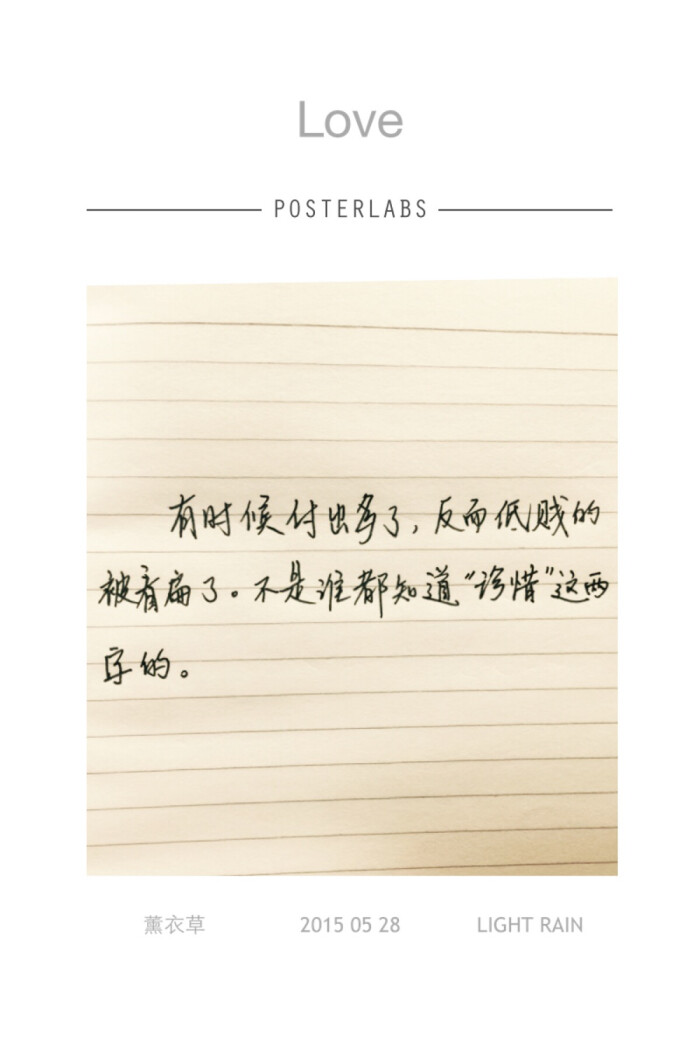 Love
POSTERLABS
有时候付出多了，反而低贱的
被看扁了。不是谁都知道“珍惜”这两
字的。
薰衣草 2015 05 28 LIGHT RAIN